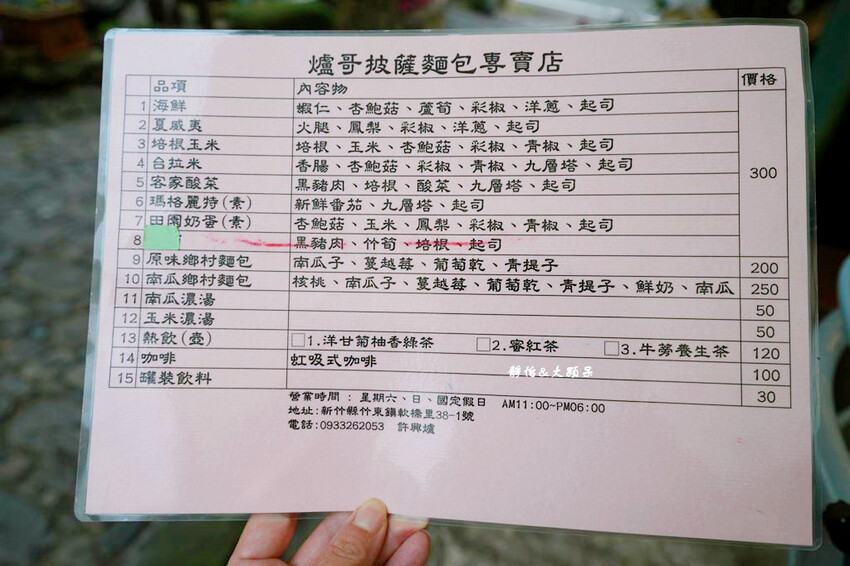 爐哥披薩麵包專賣店
品項 內容物 價格
1 海鮮 蝦仁、杏鮑菇、蘆筍、彩椒、洋蔥、起司
2 夏威夷 火腿、鳳梨、彩椒、洋蔥、起司
3 培根玉米 培根、玉米、杏鮑菇、彩椒、青椒、起司
4 台拉米 香腸、杏鮑菇、彩椒、青椒、九層塔、起司
5 客家酸菜 黑豬肉、培根、酸菜、九層塔、起司 300
6 瑪格麗特(素) 新鮮番茄、九層塔、起司
7 田園奶蛋(素) 杏鮑菇、玉米、鳳梨、彩椒、青椒、起司
8 黑豬肉、竹筍、培根、起司
9 原味鄉村麵包 南瓜子、蔓越莓、葡萄乾、青提子 200
10 南瓜鄉村麵包 核桃、南瓜子、蔓越莓、葡萄乾、青提子、鮮奶、南瓜 250
11 南瓜濃湯 50
12 玉米濃湯 50
13 熱飲(壺) □1.洋甘菊柚香綠茶 □2.蜜紅茶 □3.牛蒡養生茶 120
14 咖啡 虹吸式咖啡 100
15 罐裝飲料 30
靜怡&大顆呆
營業時間：星期六、日、國定假日 AM11:00~PM06:00
地址:新竹縣竹東鎮軟橋里38-1號
電話:0933262053 許興爐